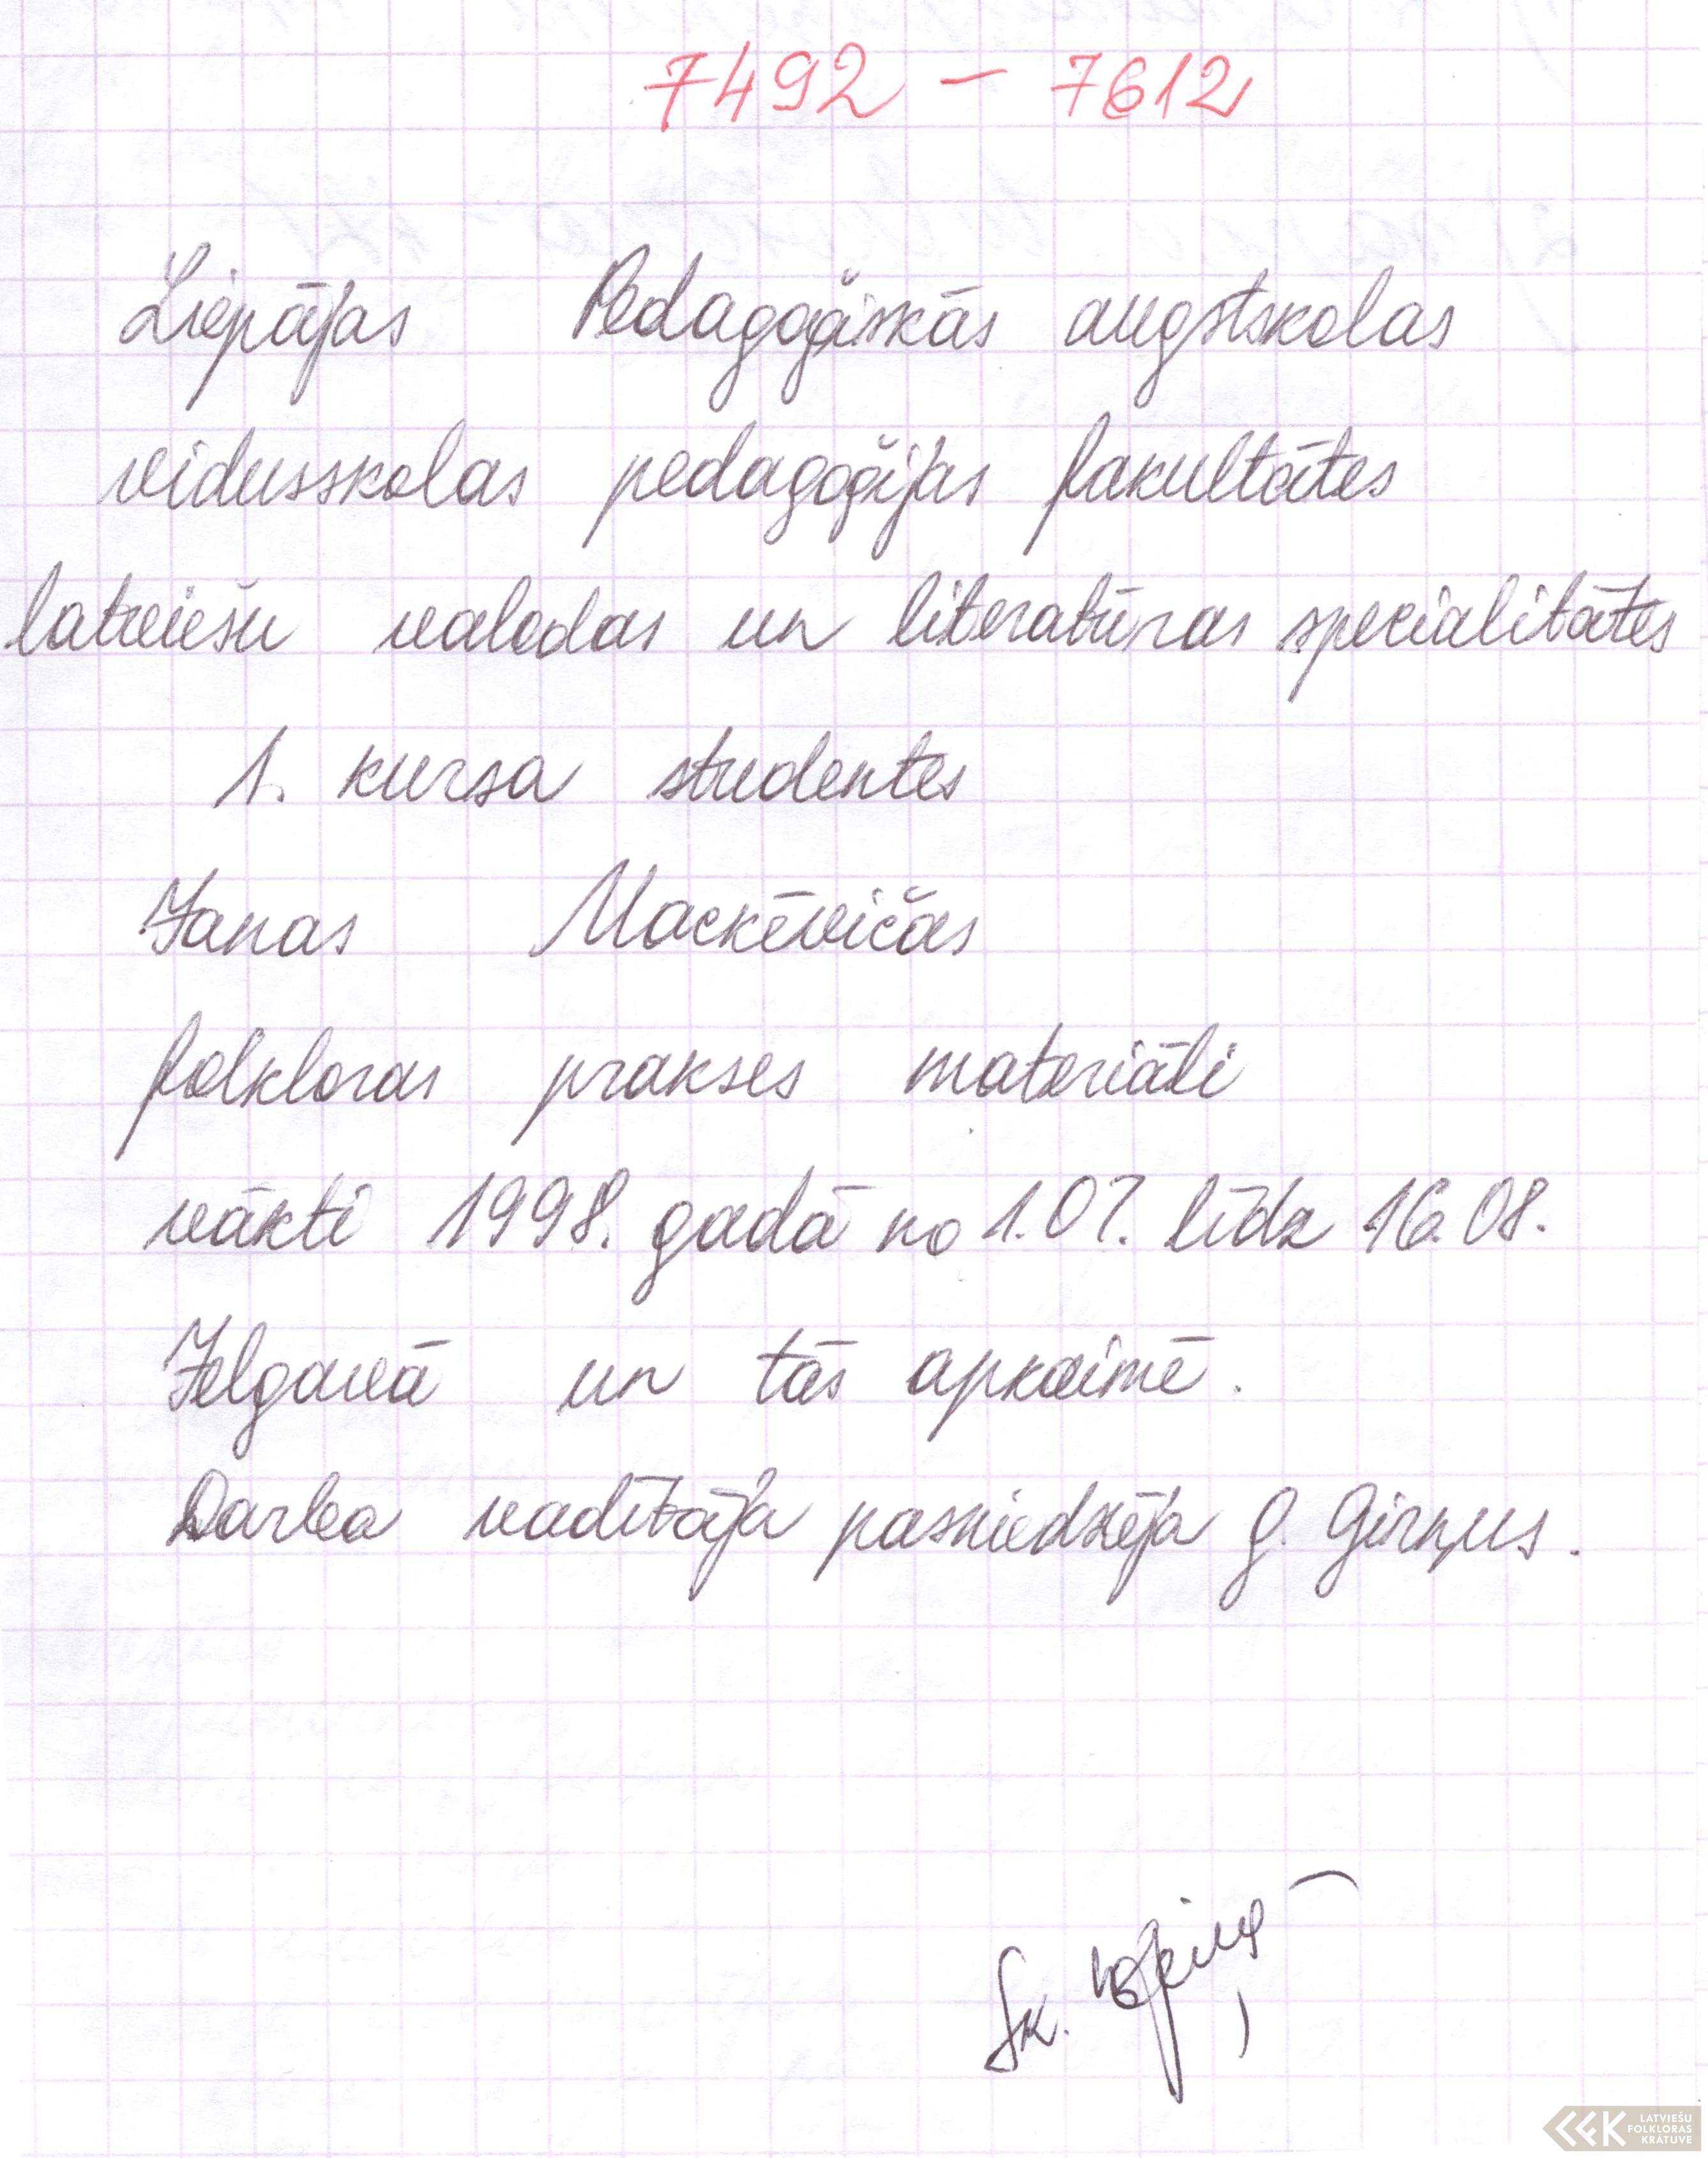 7492 – 7612
Liepājas Pedagoģiskās augstskolas
vidusskolas pedagoģijas fakultātes
latviešu valodas un literatūras specialitātes
1. kursa studentes
Janas Mackēvičas
folkloras prakses materiāli
vākti 1998. gadā no 1.07. līdz 16.08.
Jelgavā un tās apkaimē.
Darba vadītāja pasniedzēja G. Girņus.
Sk.
LATVIEŠU
FOLKLORAS
KRĀTUVE